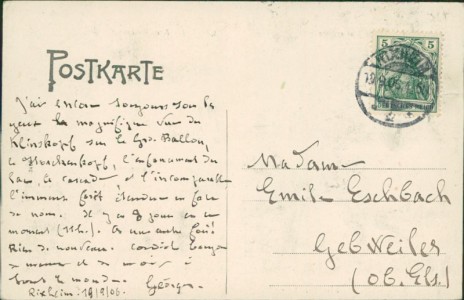 POSTKARTE
J'ai encore toujours sous les
yeux la magnifique vue du
Klinzkopf sur le Grd. Ballon,
le
lac, la cascade et l'incomparable
l'immense forêt étendue en face
de nous. Il y a 8 jours en ce
moment (11h.). A une autre fois!
Rien de nouveau. Cordial bonjour
à et à
tout le monde. George.
Rixheim 19/9/06.
5 5
Madame
Emile Eschbach
Gebweiler
(Ob. Els.)